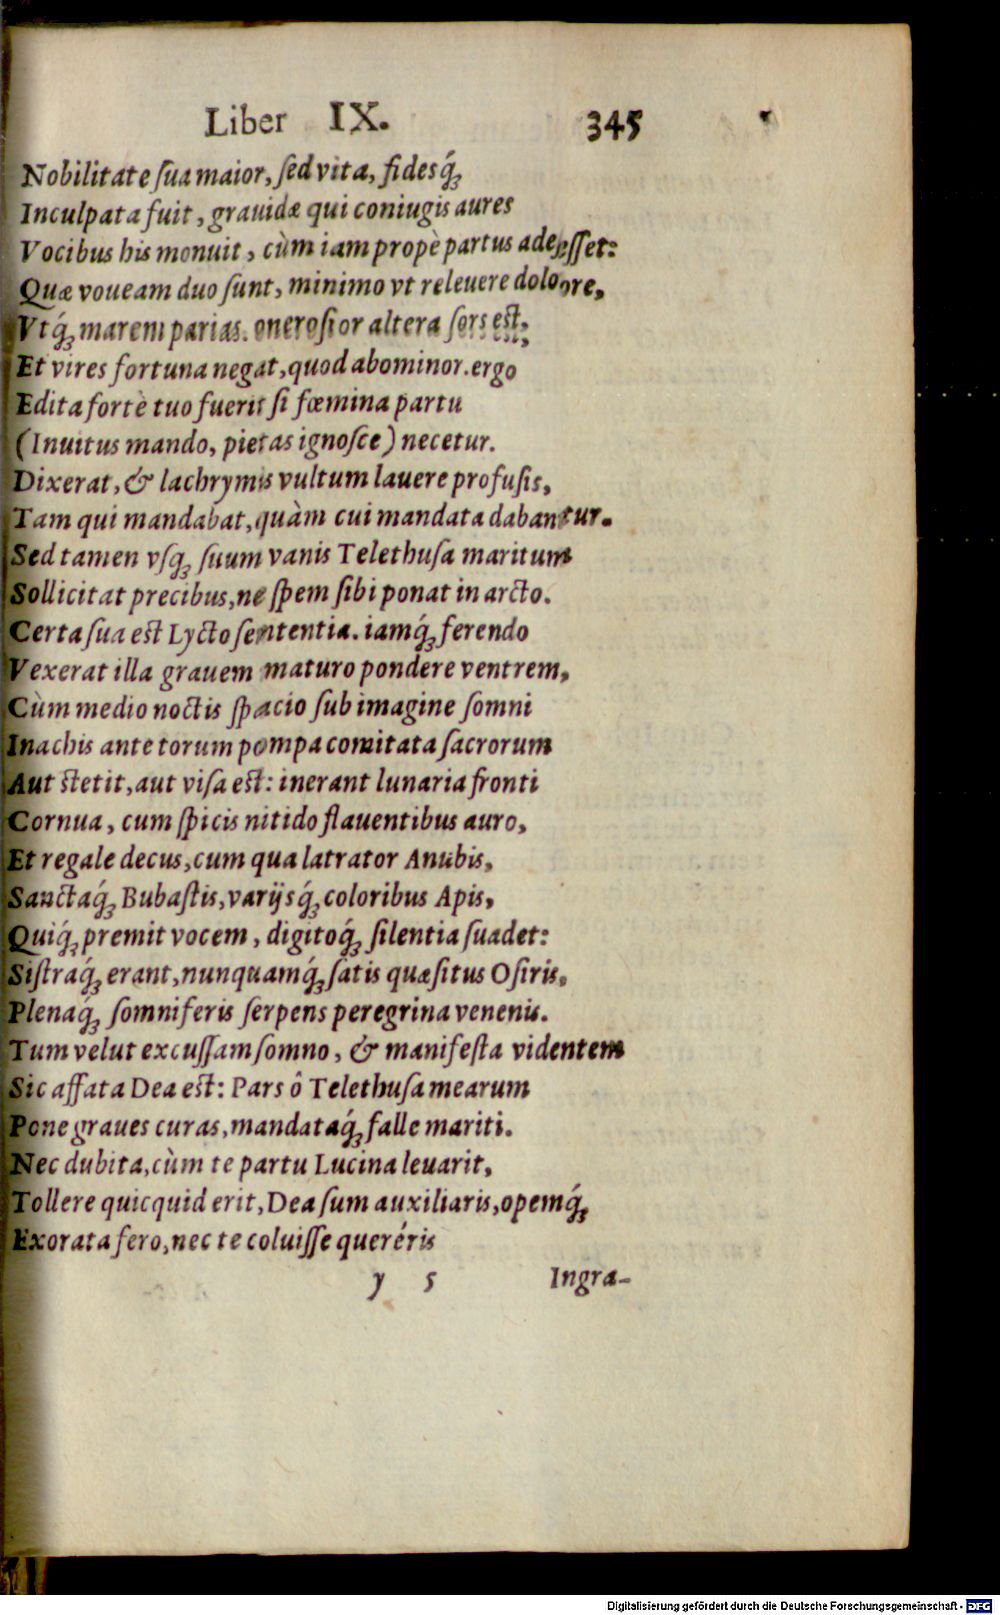 Liber IX. 345
Nobilitate ſua maior, ſed vita, fidesq́;
Inculpata fuit, grauidæ qui coniugis aures
Vocibus his monuit, cùm iam propè partus adeſſet:
Quæ voueam duo ſunt, minimo vt releuere dolore,
Vtq́; marem parias. oneroſior altera ſors eſt,
Et vires fortuna negat, quod abominor. ergo
Edita fortè tuo fuerit ſi fœmina partu
(Inuitus mando, pietas ignoſce) necetur.
Dixerat, & lachrymis vultum lauere profuſis,
Tam qui mandabat, quàm cui mandata dabantur.
Sed tamen vſq; ſuum vanis Telethuſa maritum
Sollicitat precibus, ne ſpem ſibi ponat in arcto.
Certa ſua eſt Lycto ſententia. iamq́; ferendo
Vexerat illa grauem maturo pondere ventrem,
Cùm medio noctis ſpacio ſub imagine ſomni
Inachis ante torum pompa comitata ſacrorum
Aut ſtetit, aut viſa eſt: inerant lunaria fronti
Cornua, cum ſpicis nitido flauentibus auro,
Et regale decus, cum qua latrator Anubis,
Sanctaq́; Bubaſtis, varijsq́; coloribus Apis,
Quiq́; premit vocem, digitoq́; ſilentia ſuadet:
Siſtraq́; erant, nunquamq́; ſatis quæſitus Oſiris,
Plenaq́; ſomniferis ſerpens peregrina venenis.
Tum velut excuſſam ſomno, & manifeſta videntem
Sic affata Dea eſt: Pars ô Telethuſa mearum
Pone graues curas, mandataq́; falle mariti.
Nec dubita, cùm te partu Lucina leuarit,
Tollere quicquid erit, Dea ſum auxiliaris, opemq́;
Exorata fero, nec te coluiſſe queréris
y 5 Ingra-
Digitalisierung gefördert durch die Deutsche Forschungsgemeinschaft - DFG